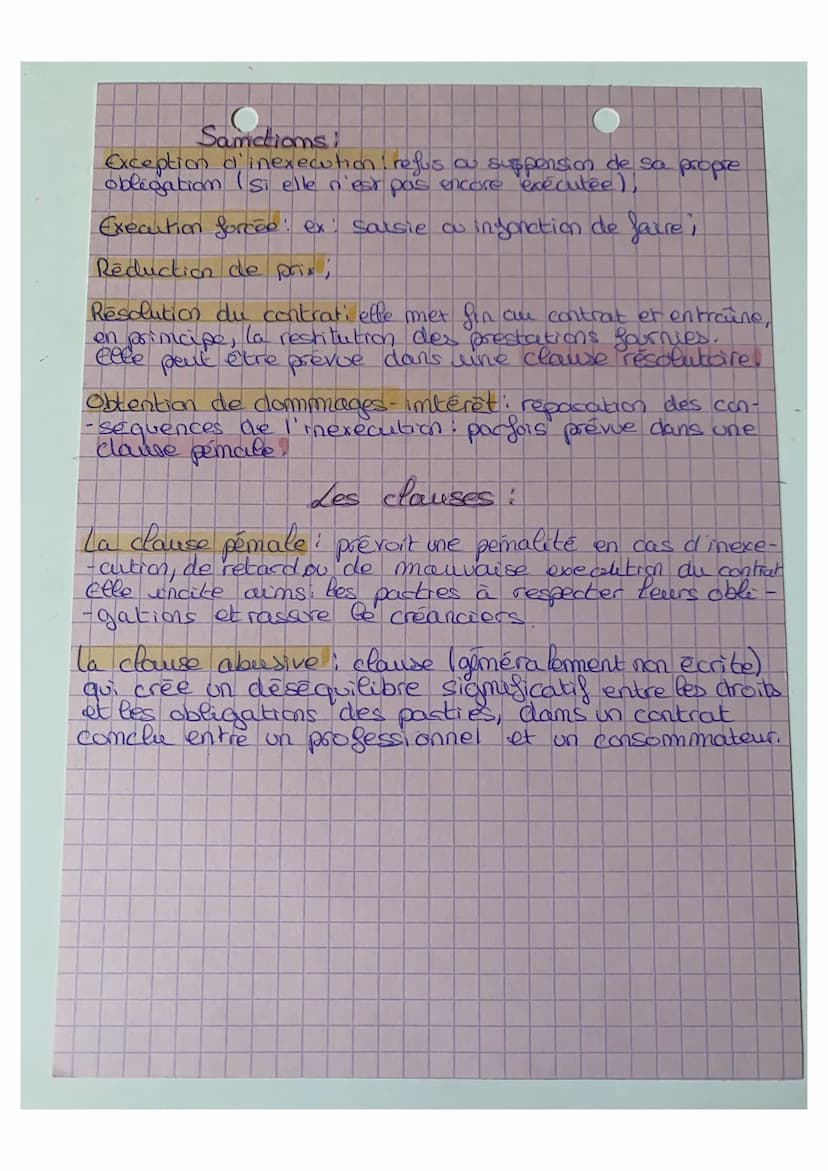 Sanctions :
Exception d'inexecution : refus ou suspension de sa propre
obligation (si elle n'est pas encore exécutée) ;
Execution forcée : ex : saisie ou injonction de faire ;
Réduction de prix ;
Résolution du contrat : elle met fin au contrat et entraîne,
en principe, la restitution des prestations fournies.
Elle peut être prévue dans une clause résolutoire.
Obtention de dommages-intérêt : réparation des con-
-séquences de l'inexécution : parfois prévue dans une
clause pénale !
Les clauses :
La clause pénale : prévoit une pénalité en cas d'inexé-
-cution, de retard ou de mauvaise execution du contrat
elle incite ainsi les parties à respecter leurs obli-
-gations et rassure le créanciers.
La clause abusive : clause (généralement non écrite)
qui crée un déséquilibre significatif entre les droits
et les obligations des parties, dans un contrat
conclu entre un professionnel et un consommateur.